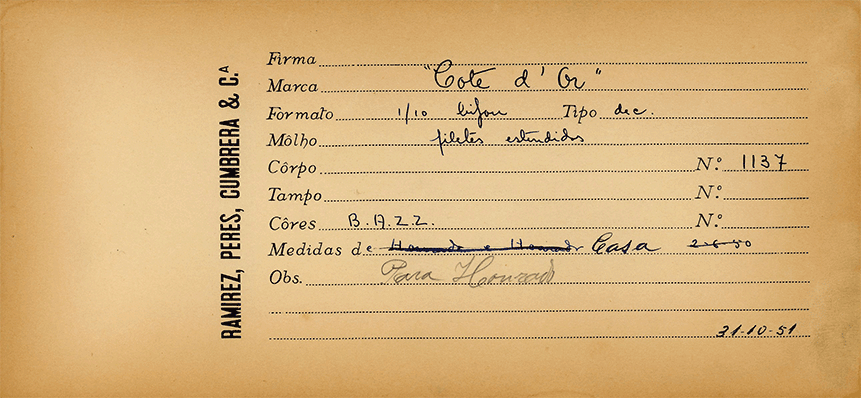 RAMIREZ, PERES, CUMBRERA & C.A
Firma
Marca "Cote d'Or"
Formato 1/10 bijou Tipo dec.
Môlho filetes estendidos
Côrpo N.º 1137
Tampo N.º
Côres B.A.Z.Z. N.º
Medidas de Honrado e Honrado Casa 2-6-50
Obs. Para Honrado
31-10-51